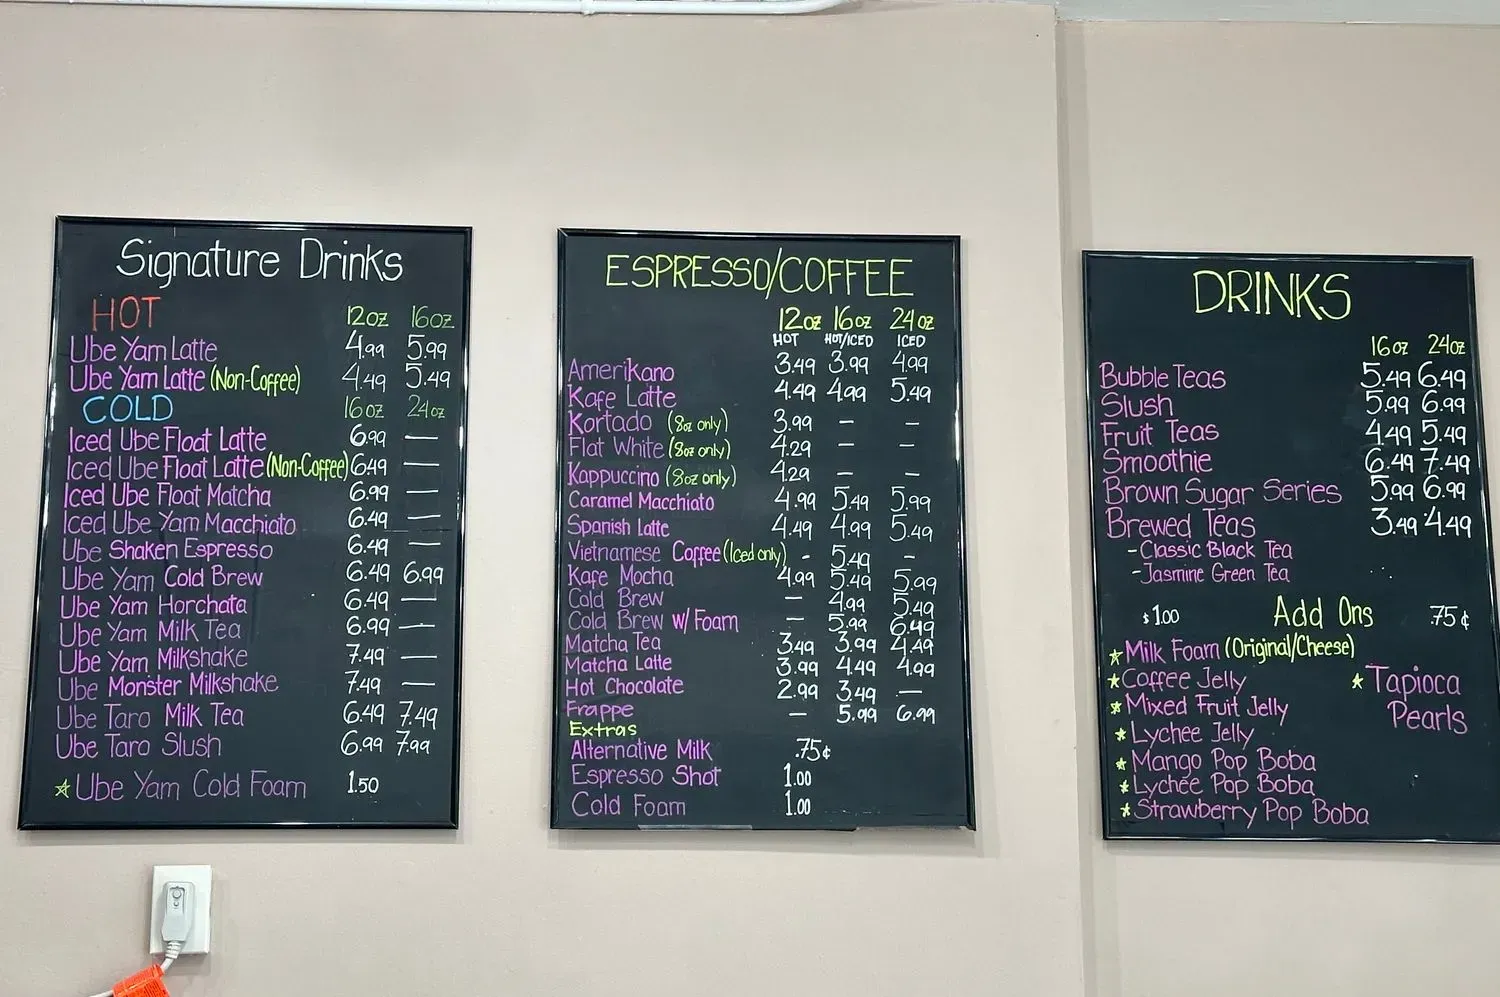 Signature Drinks
HOT 12oz 16oz
Ube Yam Latte 4.99 5.99
Ube Yam Latte (Non-Coffee) 4.49 5.49
COLD 16oz 24oz
Iced Ube Float Latte 6.99 —
Iced Ube Float Latte (Non-Coffee) 6.49 —
Iced Ube Float Matcha 6.99 —
Iced Ube Yam Macchiato 6.49 —
Ube Shaken Espresso 6.49 —
Ube Yam Cold Brew 6.49 6.99
Ube Yam Horchata 6.49 —
Ube Yam Milk Tea 6.99 —
Ube Yam Milkshake 7.49 —
Ube Monster Milkshake 7.49 —
Ube Taro Milk Tea 6.49 7.49
Ube Taro Slush 6.99 7.99
☆ Ube Yam Cold Foam 1.50
ESPRESSO/COFFEE
12oz 16oz 24oz
HOT HOT/ICED ICED
Amerikano 3.49 3.99 4.99
Kafe Latte 4.49 4.99 5.49
Kortado (8oz only) 3.99 – –
Flat White (8oz only) 4.29 – –
Kappuccino (8oz only) 4.29 – –
Caramel Macchiato 4.99 5.49 5.99
Spanish Latte 4.49 4.99 5.49
Vietnamese Coffee (Iced only) - 5.49 –
Kafe Mocha 4.99 5.49 5.99
Cold Brew – 4.99 5.49
Cold Brew w/ Foam – 5.99 6.49
Matcha Tea 3.49 3.99 4.49
Matcha Latte 3.99 4.49 4.99
Hot Chocolate 2.99 3.49 —
Frappe – 5.99 6.99
Extras
Alternative Milk .75¢
Espresso Shot 1.00
Cold Foam 1.00
DRINKS
16oz 24oz
Bubble Teas 5.49 6.49
Slush 5.99 6.99
Fruit Teas 4.49 5.49
Smoothie 6.49 7.49
Brown Sugar Series 5.99 6.99
Brewed Teas 3.49 4.49
-Classic Black Tea
-Jasmine Green Tea
$1.00 Add Ons .75¢
☆ Milk Foam (Original/Cheese)
☆ Coffee Jelly
☆ Mixed Fruit Jelly
☆ Lychee Jelly
☆ Mango Pop Boba
☆ Lychee Pop Boba
☆ Strawberry Pop Boba
☆ Tapioca
Pearls